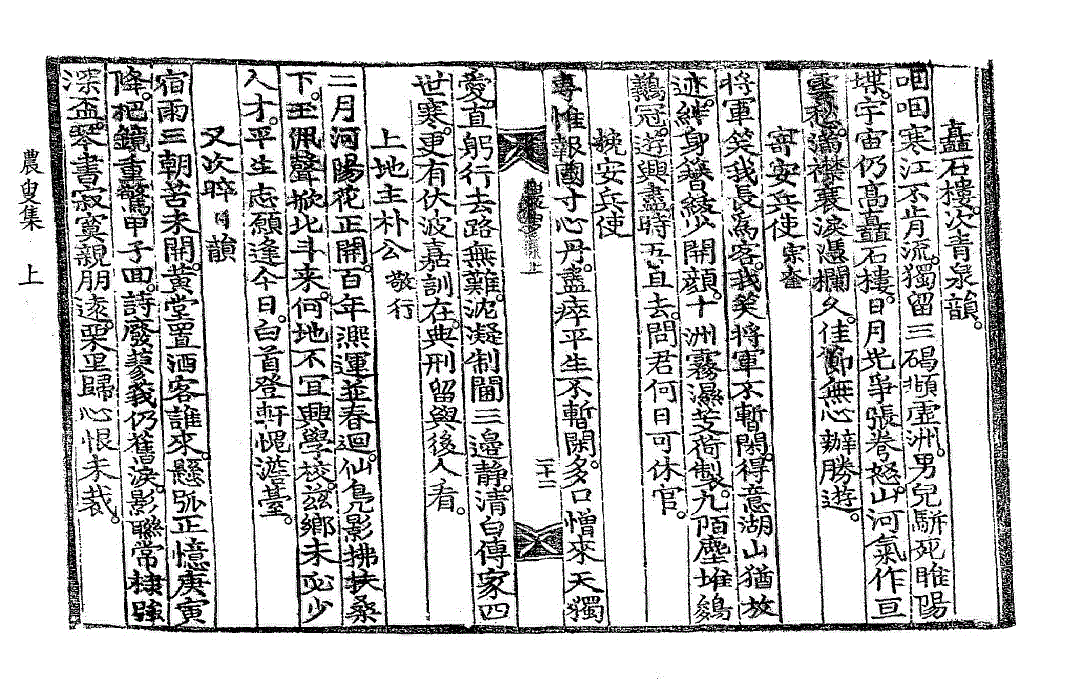 矗石樓。次青泉韻。
咽咽寒江不肯流。獨留三碣頫虛洲。男兒駢死睢陽
堞。宇宙仍高矗石樓。日月光爭張眷怒。山河氣作亘
雲秋。滿襟衰淚憑欄久。佳節無心辦勝遊。
寄安兵使 宗奎
將軍笑我長爲客。我笑將軍不暫閑。得意湖山猶放
迹。絆身簪綬少開顔。十洲霧濕芰荷製。九陌塵堆鷄
鶡冠。遊興盡時吾直去。問君何日可休官。
挽安兵使
專惟報國寸心丹。盡瘁平生不暫閑。多口憎來天獨
農叟集 上
二十二
愛。直躬行去路無難。泥凝制閫三邊静。清白傳家四
世寒。更有伏波嘉訓在。典刑留與後人看。
上地主朴公 敬行
二月河陽花正開。百年凞運並春迴。仙鳧影拂扶桑
下。玉佩聲掀北斗来。何地不宜興學校。玆鄉未必少
人才。平生志願逢今日。白首登軒愧澹臺。
又次晬日韻
宿雨三朝苦未開。黃堂置酒客誰來。懸弧正憶庚寅
降。把鏡重驚甲子回。詩廢蓼莪仍舊淚。影聯常棣強
深盃。琴書寂寞親朋遠。栗里歸心恨未裁。
農叟集 上